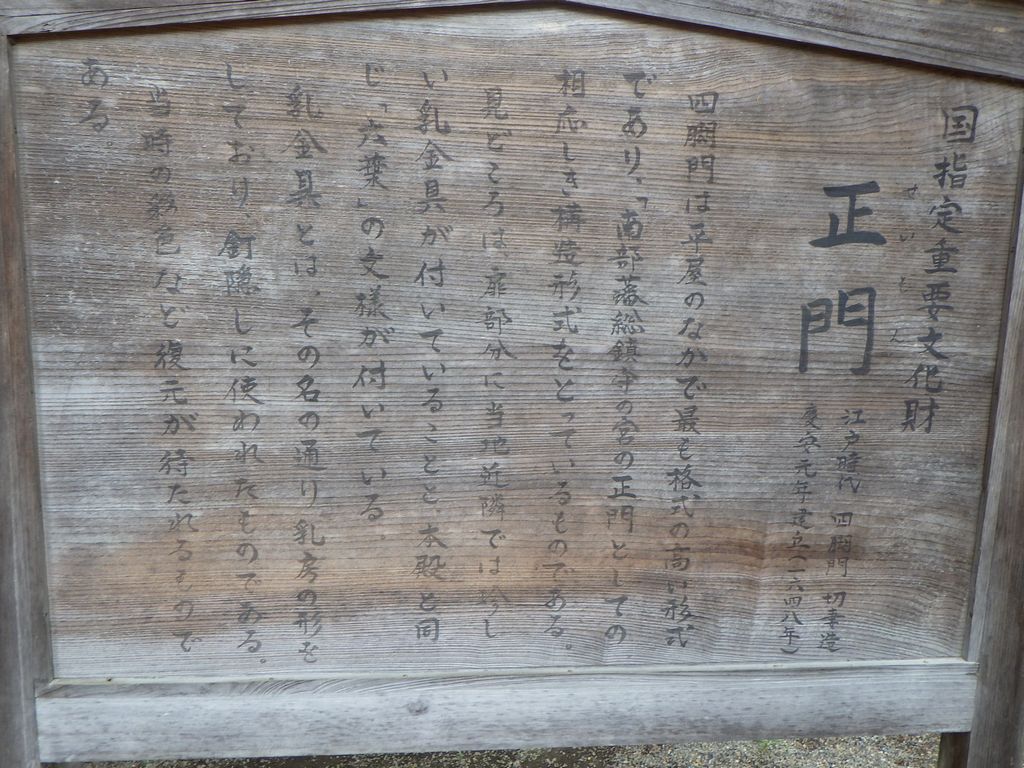 国指定重要文化財
せいもん
正門
江戸時代 四脚門 切妻造
慶安元年建立(一六四八年)
四脚門は平屋のなかで最も格式の高い形式
であり、「南部藩総鎮守の宮の正門としての
相応しき構造形式をとっているものである。
見どころは扉部分に当地近隣では珍し
い乳金具が付いていることと、本殿と同
じ「六葉」の文様が付いている
乳金具とは、その名の通り乳房の形を
しており、釘隠しに使われたものである。
当時の彩色など復元が待たれるもので
ある。